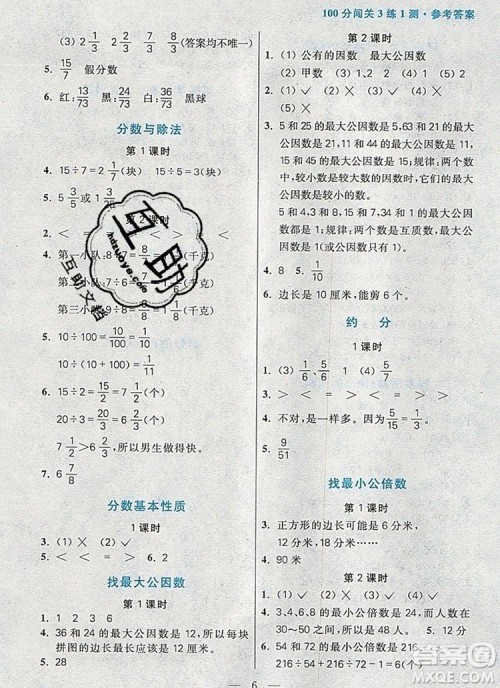 100分闯关3练1测·参考答案
(3) 2 1/4  2 2/4 (答案均不唯一)
4. 15/7 假分数
6. 红: 13/73 黑: 16/73 白: 8/73 黑球
分数与除法
第 1 课时
4. 15÷7=2 1/7(块) 15÷5=3(块)
5. 5 3/5 或 1 3/5
第 2 课时
2. < < =
4. 第一小队:8÷7=8/7(千克)
(千克)
第三小队
5. 10÷100=10/100=1/10
10÷(10+100)=1/11
7. 15÷2=15/2=7 1/2(个)
20÷3=20/3=6 2/3(个)
7 1/2>6 2/3 所以男生做得快。
8. 6 7/8
分数基本性质
1 课时
3. (1) × (2) × (3) × (4) ✓
5. < < = > 6. 2
找最大公因数
第 1 课时
3. 1 2 3 6
4. 36 和 24 的最大公因数是 12,所以每块
拼图的边长最长应该是 12 厘米。
5. 28
第 2 课时
1. (1) 公有的因数 最大公因数
(2) 甲数 (3) 1 (4) 1
2. (1) ✓ (2) × (3) ✓ (4) ×
3. 5 和 25 的最大公因数是 5,63 和 21 的
最大公因数是 21,11 和 66 的最大公因
数是 11,8 和 24 的最大公因数是 8,9 和
81 的最大公因数是 9;规律:两个数
中,较小数是较大数的因数时,它们的
最大公因数是较小的数。
5 和 4,9 和 10,1 和 7,6 和 11,8 和 9 的
最大公因数是 1;规律:两个数是互质
数,最大公因数只有 1。
4. 8 5. 1/10
6. 边长是 10 厘米,能剪 6 个。
约 分
1 课时
1. (3) 1/6、5/6 (4) 1/5
3. (1) × (2) × (3) × (4) ✓
4. 不对,是一样多的。因为 5/15=1/3。
5. 9/51
找最小公倍数
第 1 课时
3. 正方形的边长可能是 6 分米,
12 分米,18 分米……
4. 90 米
第 2 课时
2. (1) × (2) ✓ (3) ✓ (4) ×
4. 3、4、6、8 的最小公倍数是 24,人数在
30~50 之间,所以是 48 人。 5. 12 分
6. 54 和 72 的最小公倍数是 216,
216÷54+216÷72-1=6(个)
互助
hdzuoye.com
互助文档
6
作业答案
MXQE.COM